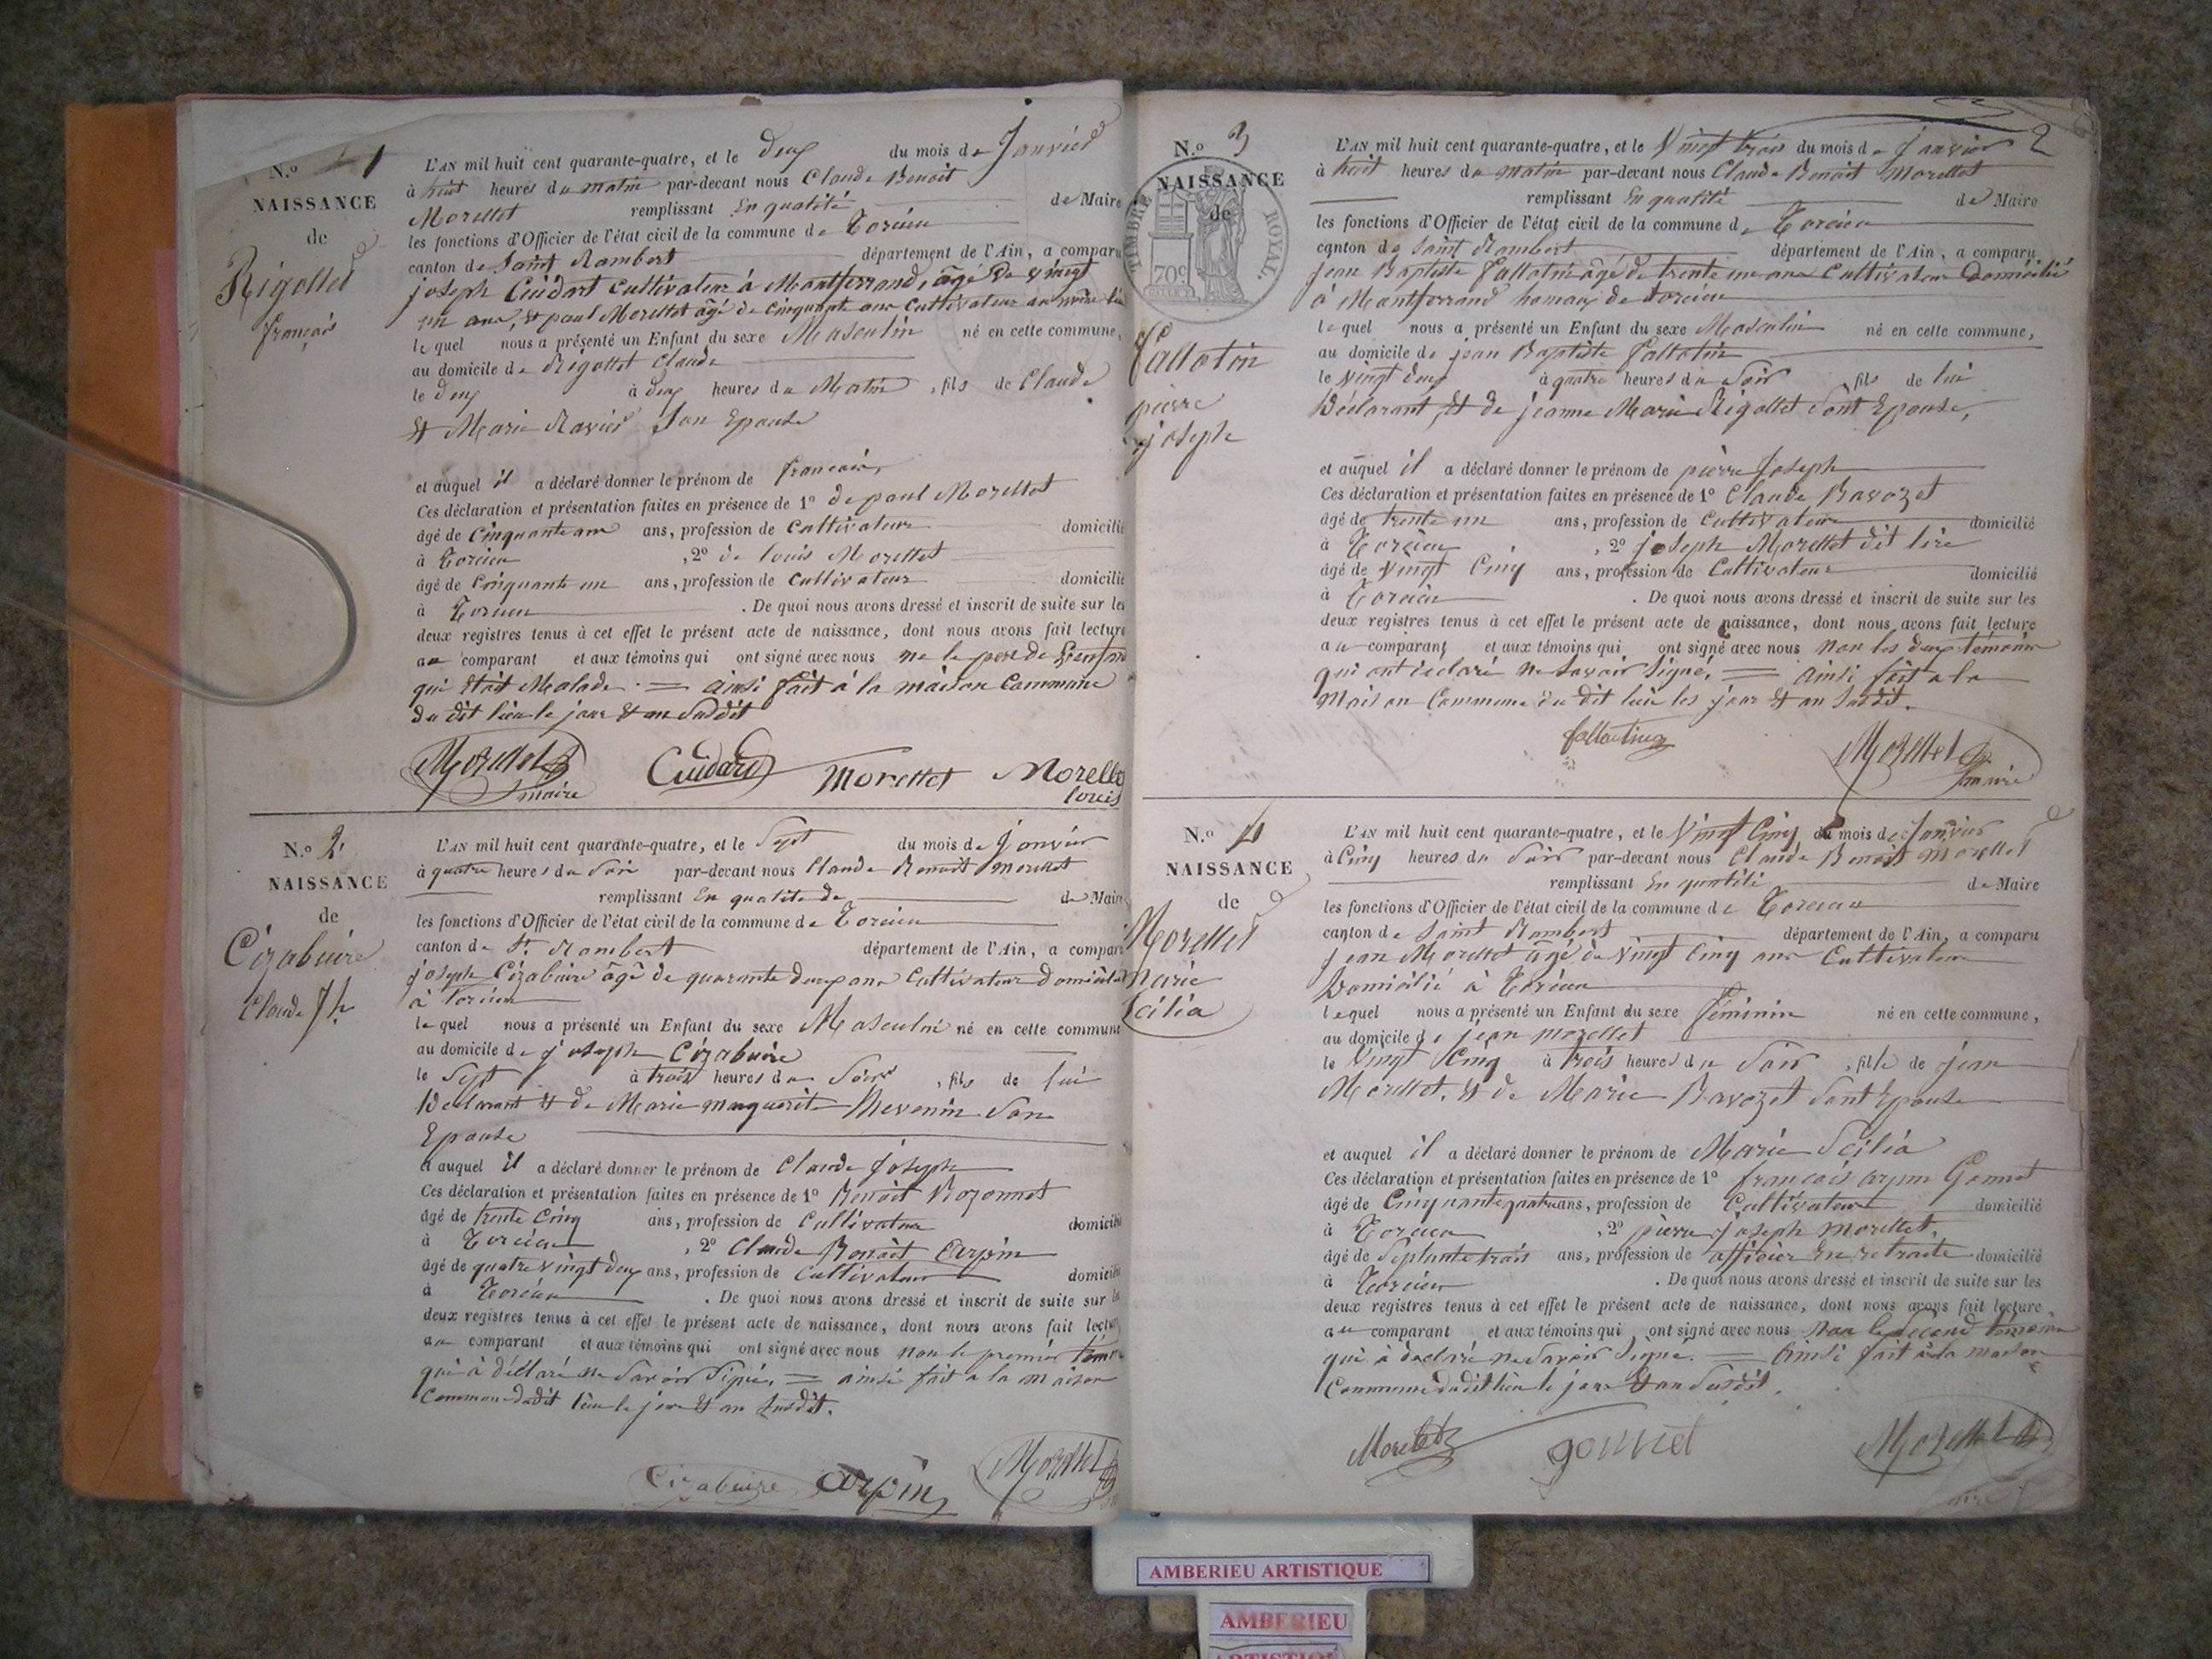 N.o 1
NAISSANCE
de
Rigollet
françois
L'AN mil huit cent quarante-quatre, et le deux du mois de Janvier
à huit heures du matin par-devant nous Claude Benoit
Morellet remplissant En qualité de Maire
les fonctions d'Officier de l'état civil de la commune de Torcieu
canton de Saint Rambert département de l'Ain, a comparu
joseph Cuidart cultivateur à Montferrand, âgé de vingt
un ans, & paul Morellet âgé de cinquante ans Cultivateur au même lieu
lequel nous a présenté un Enfant du sexe Masculin né en cette commune,
au domicile de Rigollet Claude
le deux à deux heures du Matin, fils de Claude
& Marie Ravier Son Epouse
et auquel il a déclaré donner le prénom de françois
Ces déclaration et présentation faites en présence de 1o de paul Morellet
âgé de Cinquante ans ans, profession de Cultivateur domicilié
à Torcieu, 2o de louis Morellet
âgé de Cinquante un ans, profession de Cultivateur domicilié
à Torcieu. De quoi nous avons dressé et inscrit de suite sur les
deux registres tenus à cet effet le présent acte de naissance, dont nous avons fait lecture
au comparant et aux témoins qui ont signé avec nous ne le pere de l'enfant
qui était Malade. = ainsi fait à la maison Commune
du dit lieu le jour & an Susdit
Morellet maire Cuidard Morellet Morellet
louis
N.o 2
NAISSANCE
de
Cizabuire
Claude Jh
L'AN mil huit cent quarante-quatre, et le Sept du mois de Janvier
à quatre heures du Soir par-devant nous Claude Benoit Morellet
remplissant En qualite de de Maire
les fonctions d'Officier de l'état civil de la commune de Torcieu
canton de St Rambert département de l'Ain, a comparu
joseph Cizabuire âgé de quarante deux ans Cultivateur Domicilié
à Torcieu
lequel nous a présenté un Enfant du sexe Masculin né en cette commune
au domicile de joseph Cizabuire
le Sept à trois heures du Soir, fils de lui
Déclarant & de Marie Marguerite Thevenin Son
Epouse
et auquel il a déclaré donner le prénom de Claude Joseph
Ces déclaration et présentation faites en présence de 1o Benoit
âgé de trente Cinq ans, profession de Cultivateur domicilié
à Torcieu, 2o Claude Benoit Arpin
âgé de quatre vingt deux ans, profession de Cultivateur domicilié
à Torcieu. De quoi nous avons dressé et inscrit de suite sur les
deux registres tenus à cet effet le présent acte de naissance, dont nous avons fait lecture
au comparant et aux témoins qui ont signé avec nous non le premier témoin
qui à déclaré ne Savoir Signé. = ainsi fait a la maison
Commune dudit lieu le jour & an Susdit.
Cizabuire arpin Morellet
N.o 3
NAISSANCE
de
TIMBRE ROYAL
70c
fallotin
pierre
joseph
2
L'AN mil huit cent quarante-quatre, et le Vingt trois du mois de Janvier
à huit heures du matin par-devant nous Claude Benoit Morellet
remplissant En qualité de Maire
les fonctions d'Officier de l'état civil de la commune de Torcieu
canton de Saint Rambert département de l'Ain, a comparu
jean Baptiste fallotin âgé de trente un ans Cultivateur Domicilié
à Montferrand hameau de torcieu
lequel nous a présenté un Enfant du sexe Masculin né en cette commune,
au domicile de jean Baptiste fallotin
le Vingt deux à quatre heures du Soir, fils de lui
Déclarant, & de jeanne Marie Rigollet Sont Epouse,
et auquel il a déclaré donner le prénom de pierre Joseph
Ces déclaration et présentation faites en présence de 1o Claude Bavozet
âgé de trente un ans, profession de Cultivateur domicilié
à Torcieu, 2o joseph Morellet dit lire
âgé de Vingt Cinq ans, profession de Cultivateur domicilié
à Torcieu. De quoi nous avons dressé et inscrit de suite sur les
deux registres tenus à cet effet le présent acte de naissance, dont nous avons fait lecture
au comparant et aux témoins qui ont signé avec nous non les deux témoins
qui ont déclaré ne Savoir Signé, = ainsi fait a la
Maison Commune du dit lieu les jour & an Susdit.
fallotin Morellet
maire
N.o 4
NAISSANCE
de
Morellet
Marie
Scilia
L'AN mil huit cent quarante-quatre, et le Vingt Cinq du mois de Janvier
à Cinq heures du Soir par-devant nous Claude Benoit Morellet
remplissant En qualité de Maire
les fonctions d'Officier de l'état civil de la commune de Torcieu
canton de Saint Rambert département de l'Ain, a comparu
jean Morellet âgé de Vingt Cinq ans Cultivateur
Domicilié à Torcieu
lequel nous a présenté un Enfant du sexe féminin né en cette commune,
au domicile de jean morellet
le Vingt Cinq à trois heures du Soir, fille de jean
Morellet, & de Marie Bavozet Sont Epouse
et auquel il a déclaré donner le prénom de Marie Scilia
Ces déclaration et présentation faites en présence de 1o françois arpin Gonnet
âgé de Cinquante quatre ans, profession de Cultivateur domicilié
à Torcieu, 2o pierre joseph morellet,
âgé de Septante trois ans, profession de officier En retraite domicilié
à Torcieu. De quoi nous avons dressé et inscrit de suite sur les
deux registres tenus à cet effet le présent acte de naissance, dont nous avons fait lecture
au comparant et aux témoins qui ont signé avec nous non le Second témoin
qui à déclaré ne Savoir Signé. = Ainsi fait à la maison
Commune dudit lieu le jour & an Susdit.
Morellet gonnet Morellet
AMBERIEU ARTISTIQUE
AMBERIEU
ARTISTIQUE